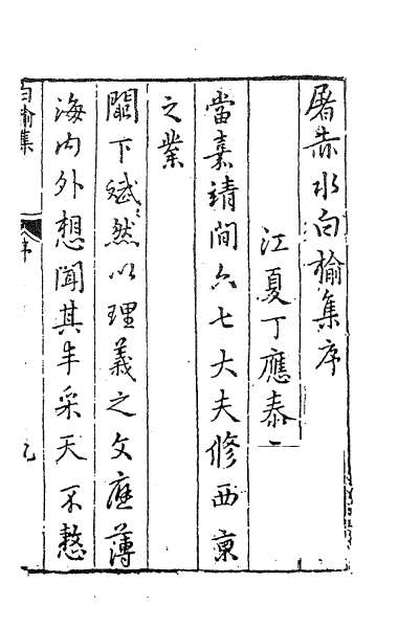 屠赤水白榆集序
江夏丁應泰
當嘉靖間六七大夫修西京
之業
闕下斌〻然以理義之文應薄
海内外想聞其丰采天不憗
白榆集
序